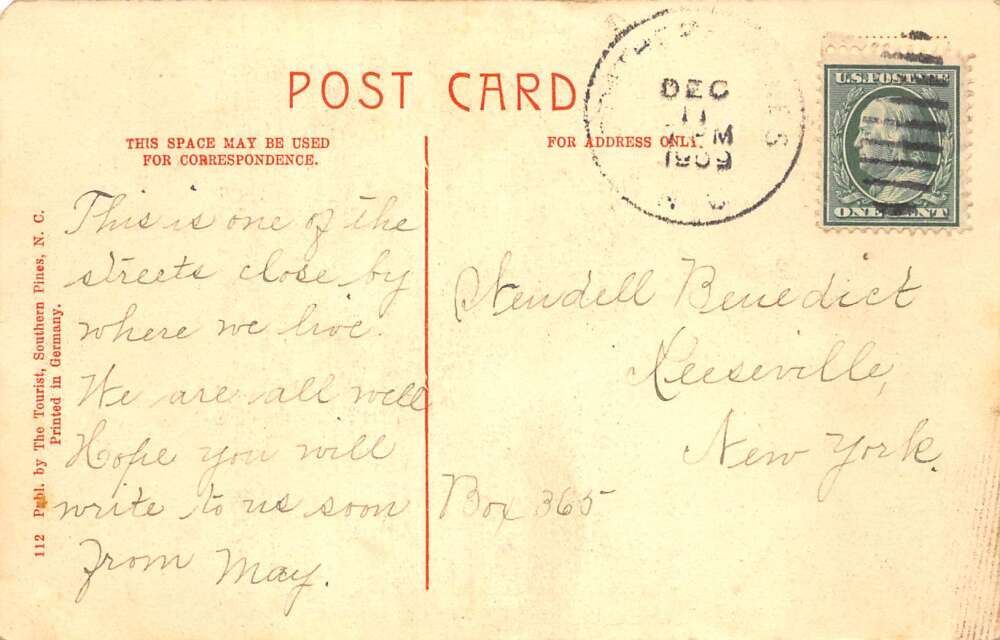 POST CARD
THIS SPACE MAY BE USED
FOR CORRESPONDENCE.
FOR ADDRESS ONLY.
DEC
11
M
1909
N C
U.S. POSTAGE
ONE CENT
This is one of the
streets close by
where we live.
We are all well
Hope you will
write to us soon
From May.
Wendell Benedict
Keeseville,
New York.
Box 365
112 Publ. by The Tourist, Southern Pines, N. C.
Printed in Germany.